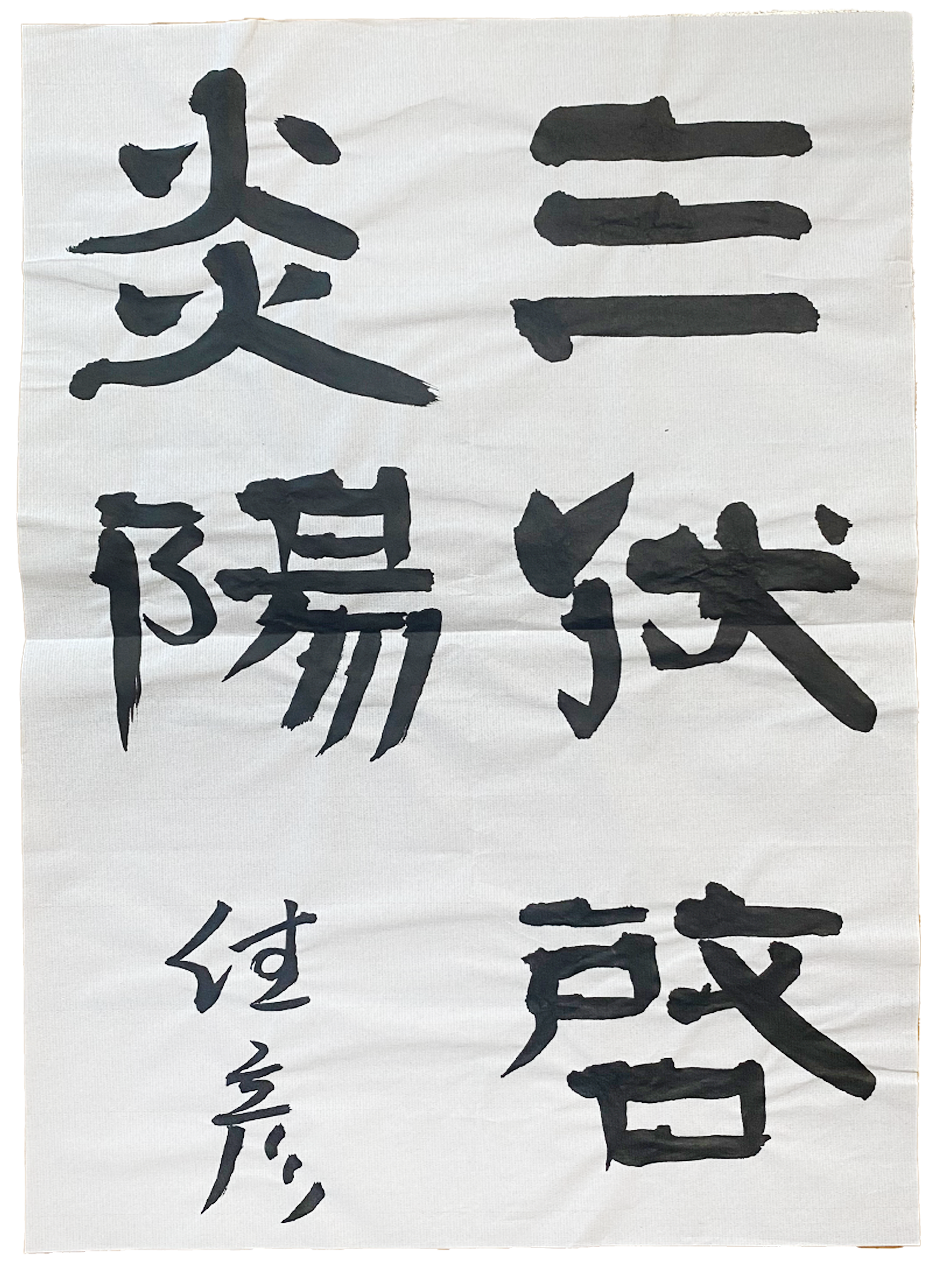 三伏啓
炎陽
佳彦